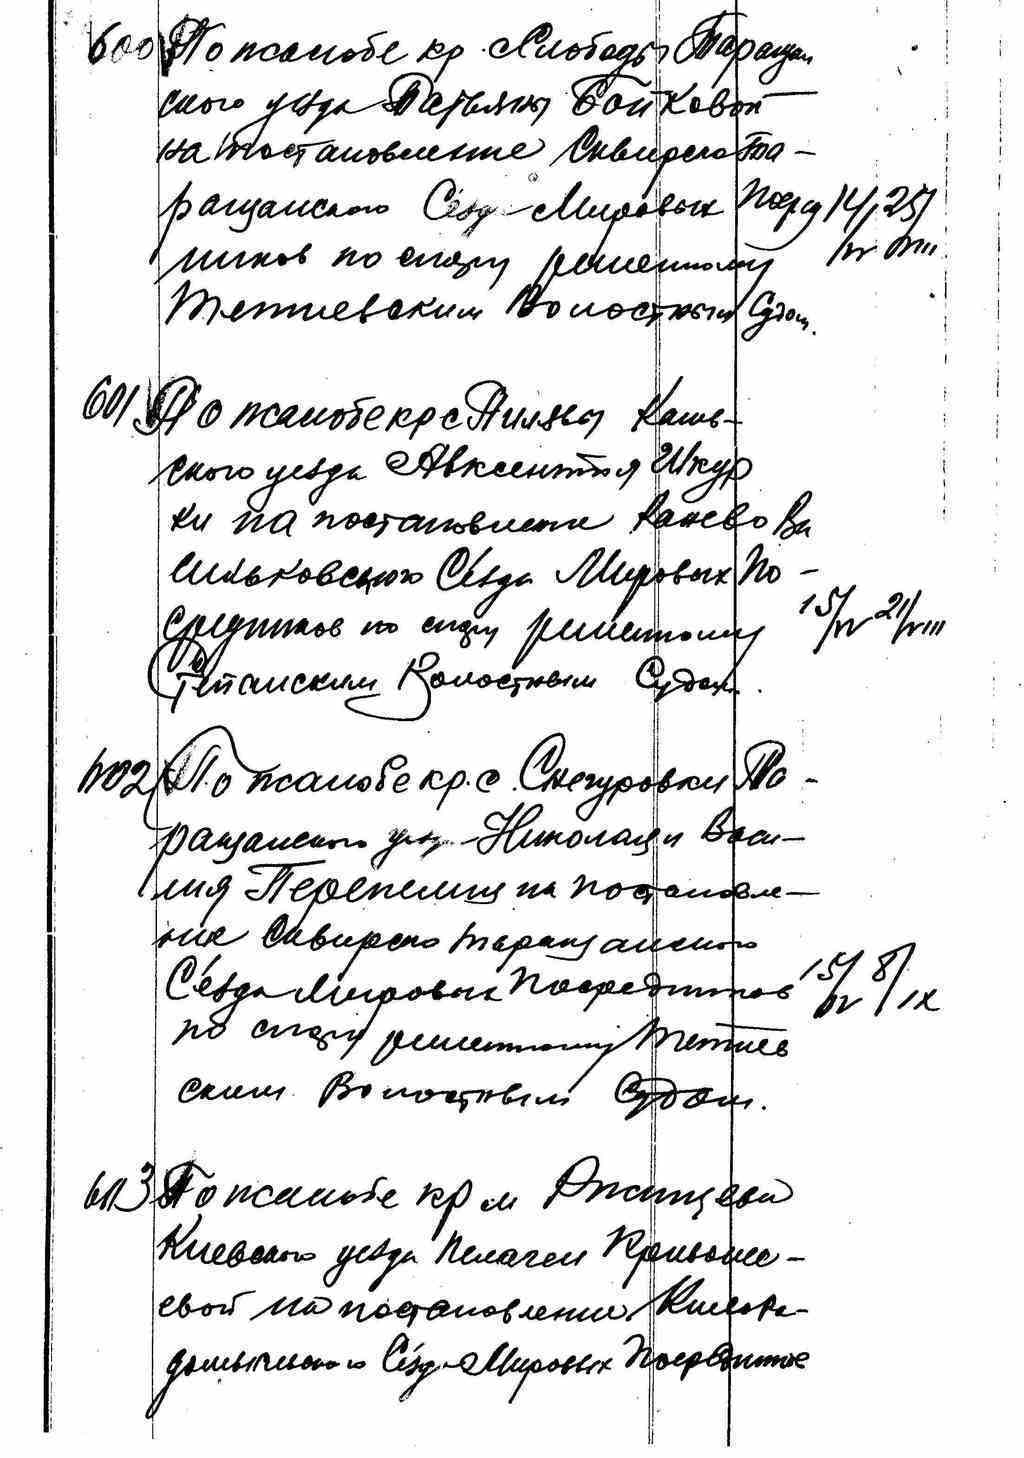 600 По жалобе кр. Слободы Таращан
ского уезда Татьяны Бойковой
на постановление Сквирско Та-
ращанского Съезда Мировых Посред
ников по спору решенному
Тетиевским Волостным Судом.
14/IV 25/VIII
601 По жалобе кр с Пилявы Канев-
ского уезда Авксентия Шкур
ки на постановление Канево Ва
сильковского Съезда Мировых По-
средников по спору решенному
Степанским Волостным Судом.
15/IV 21/VIII
602 По жалобе кр. с. Снегуровки Та-
ращанского уезда Николая и Васи-
лия Перепелица на постановле-
ние Сквирско Таращанского
Съезда Мировых Посредников
по спору решенному Тетиев
ским Волостным Судом.
15/IV 8/IX
603 По жалобе кр м Ржищева
Киевского уезда Пелагеи Кривоше-
евой на постановление Киево Ра-
домысльского Съезда Мировых Посредников